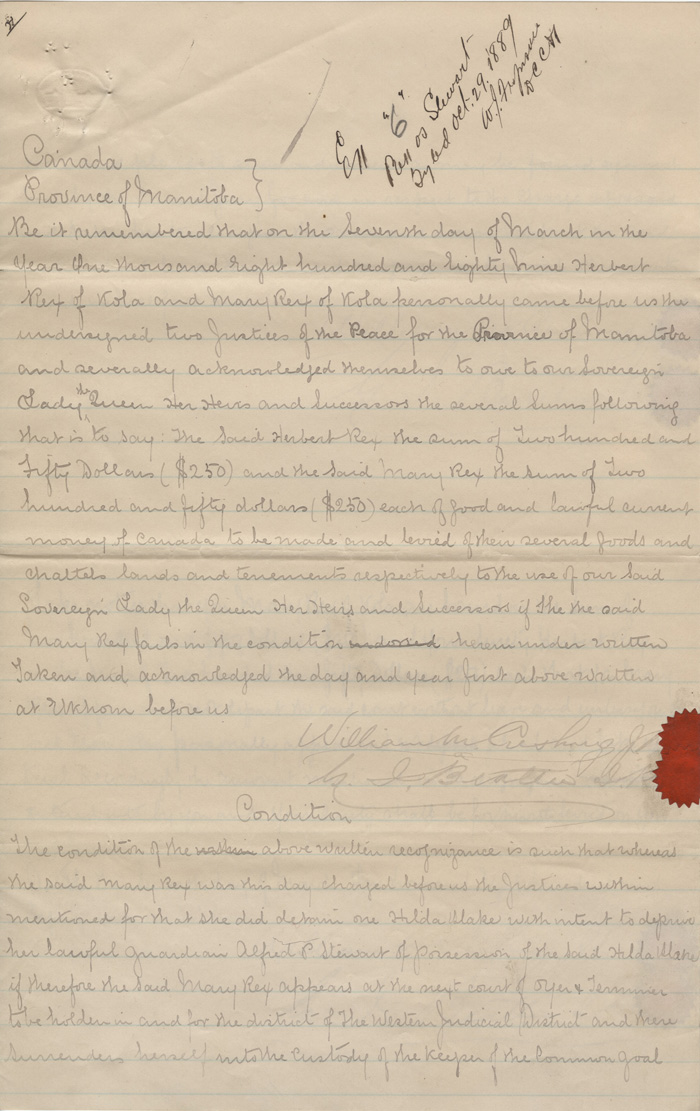 Ex "6"
Rex vs Stewart
Filed Oct. 29. 1889
DCCW
Canada
Province of Manitoba }
Be it remembered that on the Seventh day of March in the
Year One thousand Eight hundred and Eighty Nine Herbert
Rex of Kola and Mary Rex of Kola personally came before us the
undersigned two Justices of the Peace for the Province of Manitoba
and severally acknowledged themselves to owe to our Sovereign
Lady the Queen Her Heirs and Successors the several Sums following
that is to say: The Said Herbert Rex the sum of Two hundred and
Fifty Dollars ($250) and the said Mary Rex the sum of Two
hundred and fifty dollars ($250) each of good and lawful current
money of Canada to be made and levied of their several goods and
chattels lands and tenements respectively to the use of our Said
Sovereign Lady the Queen Her Heirs and Successors if She the said
Mary Rex fails in the condition indorsed herein under written
Taken and acknowledged the day and year first above written
at Elkhorn before us
William M. J.P.
G. I. Beattie J.P.
Condition
The condition of the within above written recognizance is such that whereas
the said Mary Rex was this day charged before us the Justices within
mentioned for that she did detain one Hilda Blake with intent to deprive
her lawful guardian Alfred P Stewart of Possession of the Said Hilda Blake
if therefore the Said Mary Rex appears at the next court of Oyer & Terminer
to be holden in and for the district of The Western Judicial District and there
Surrenders herself into the Custody of the Keeper of the Common Goal